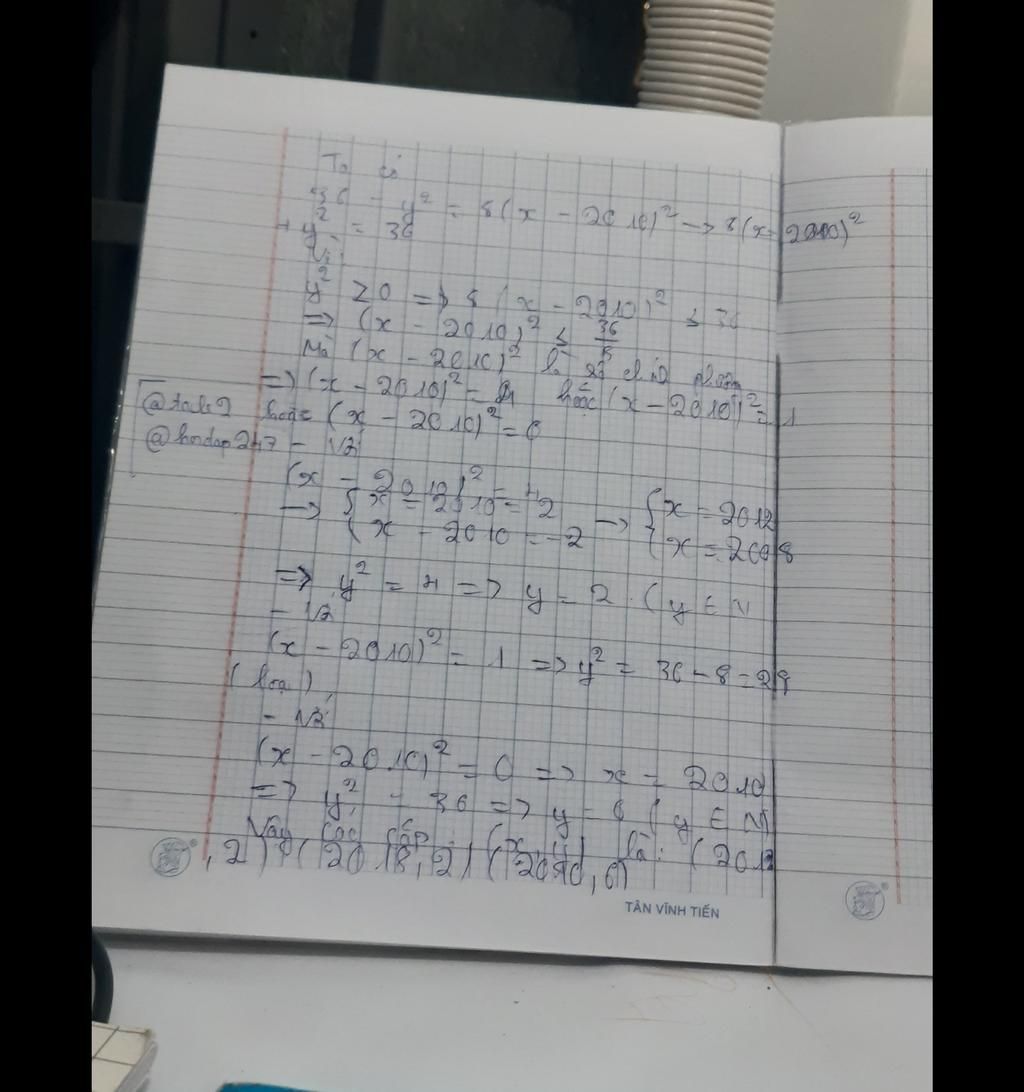 Ta có
36 - y² = 8(x - 2010)² → 8(x - 2010)²
+ y² = 36
Vì
y² ≥ 0 => 8 (x - 2010)² ≤ 36
=> (x - 2010)² ≤ 36/8
Mà (x - 2010)² là số chính phương
=> (x - 2010)² = 4 hoặc (x - 2010)² = 1
hoặc (x - 2010)² = 0
@hoidap247 - Với
(x - 2010)² = 4
→ { x - 2010 = 2 → { x = 2012
{ x - 2010 = -2 { x = 2008
=> y² = 4 => y = 2 (y ∈ N
- Với
(x - 2010)² = 1 => y² = 36 - 8 = 28
(loại)
- Với
(x - 2010)² = 0 => x = 2010
=> y² = 36 => y = 6 (y ∈ N)
Vậy các cặp (x, y) là: (2012
, 2) (2008, 2) (2010, 6)
TÂN VĨNH TIẾN